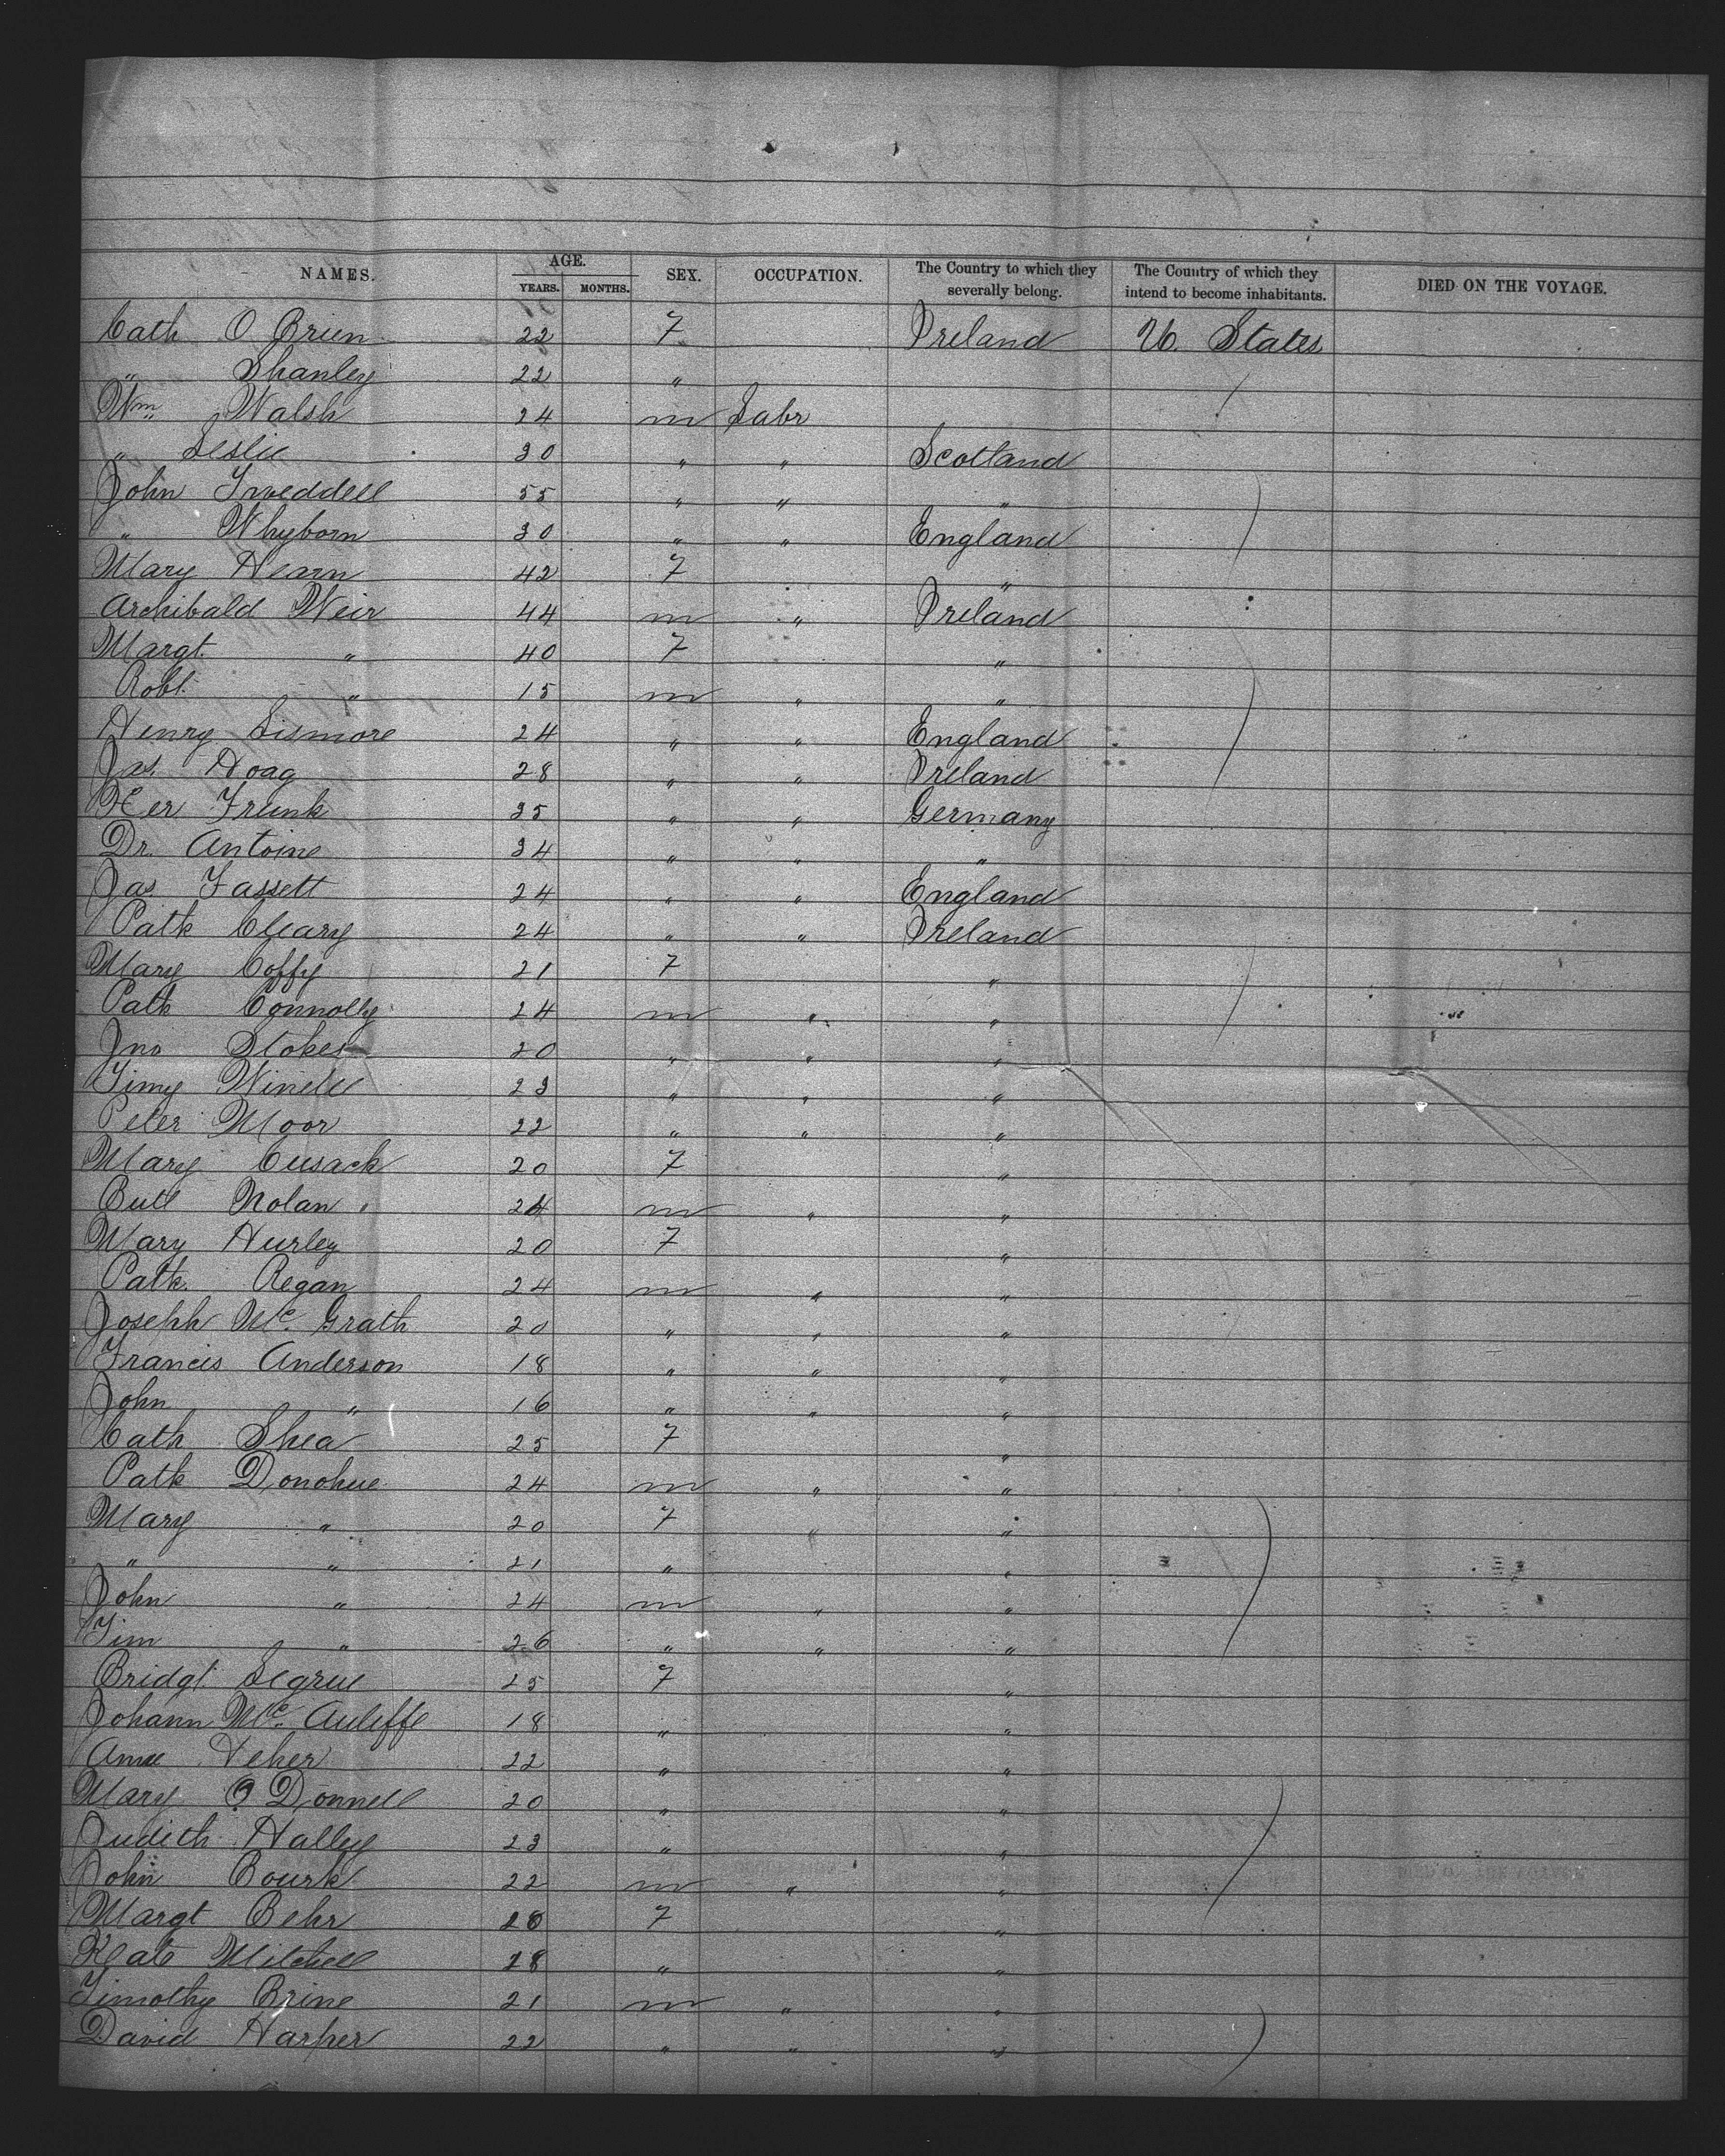 NAMES. AGE. SEX. OCCUPATION. The Country to which they severally belong. The Country of which they intend to become inhabitants. DIED ON THE VOYAGE.
YEARS. MONTHS.
Cath O Brien 22 F Ireland U. States
" Shanley 22 "
Wm Walsh 24 m Labr
" Leslie 30 " " Scotland
John Tweddell 55 " " "
" Whyborn 30 " " England
Mary Hearn 42 F "
Archibald Weir 44 m " Ireland
Margt. " 40 F "
Robt. " 15 m " "
Henry Lismore 24 " " England
Jas. Hoag 28 " " Ireland
Her Frunk 35 " " Germany
Dr. Antoine 34 " " "
Jas Fassett 24 " " England
Patk Cleary 24 " " Ireland
Mary Coffy 21 F "
Patk Connolly 24 m " "
Jno Stokes 20 " " "
Timy 23 " " "
Peter Moor 22 " " "
Mary Cusack 20 F "
Nolan 24 m " "
Mary Hurley 20 F "
Patk. Regan 24 m " "
Joseph Mc. Grath 20 " " "
Francis Anderson 18 " " "
John " 16 " " "
Cath Shea 25 F "
Patk Donohue 24 m " "
Mary " 20 F " "
" " 21 " "
John " 24 m " "
Tim " 26 " " "
Bridgt Segrue 25 F "
Johann Mc. Auliffe 18 " "
Anne 22 " "
Mary O Donnell 20 " "
Judith Halley 23 " "
John Bourk 22 m " "
Margt Behr 20 F "
Kate Mitchell 28 " "
Timothy Brine 21 m " "
David Harper 22 " " "